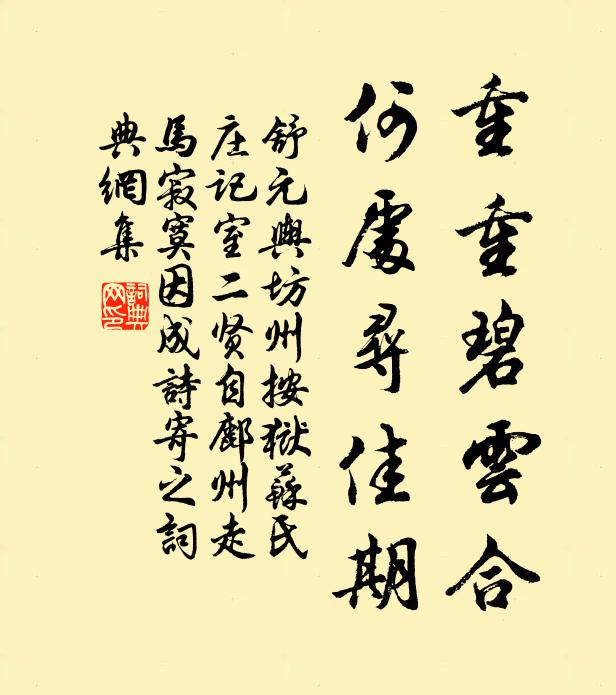 重重碧雲合
何處尋佳期
舒元輿坊州按獄蘇氏
庄記室二贤自鄜州走
馬寂寞因成詩寄之詞
典網集
詞典網印